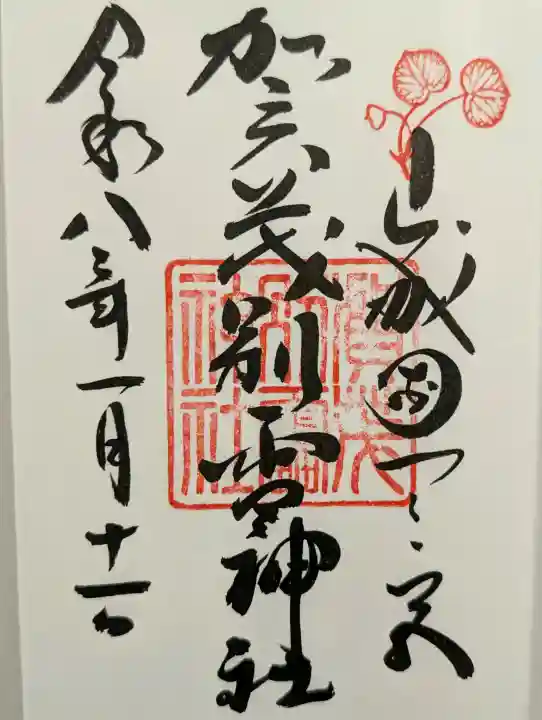 山城國一之宮
賀茂別雷神社
令和八年一月十一日